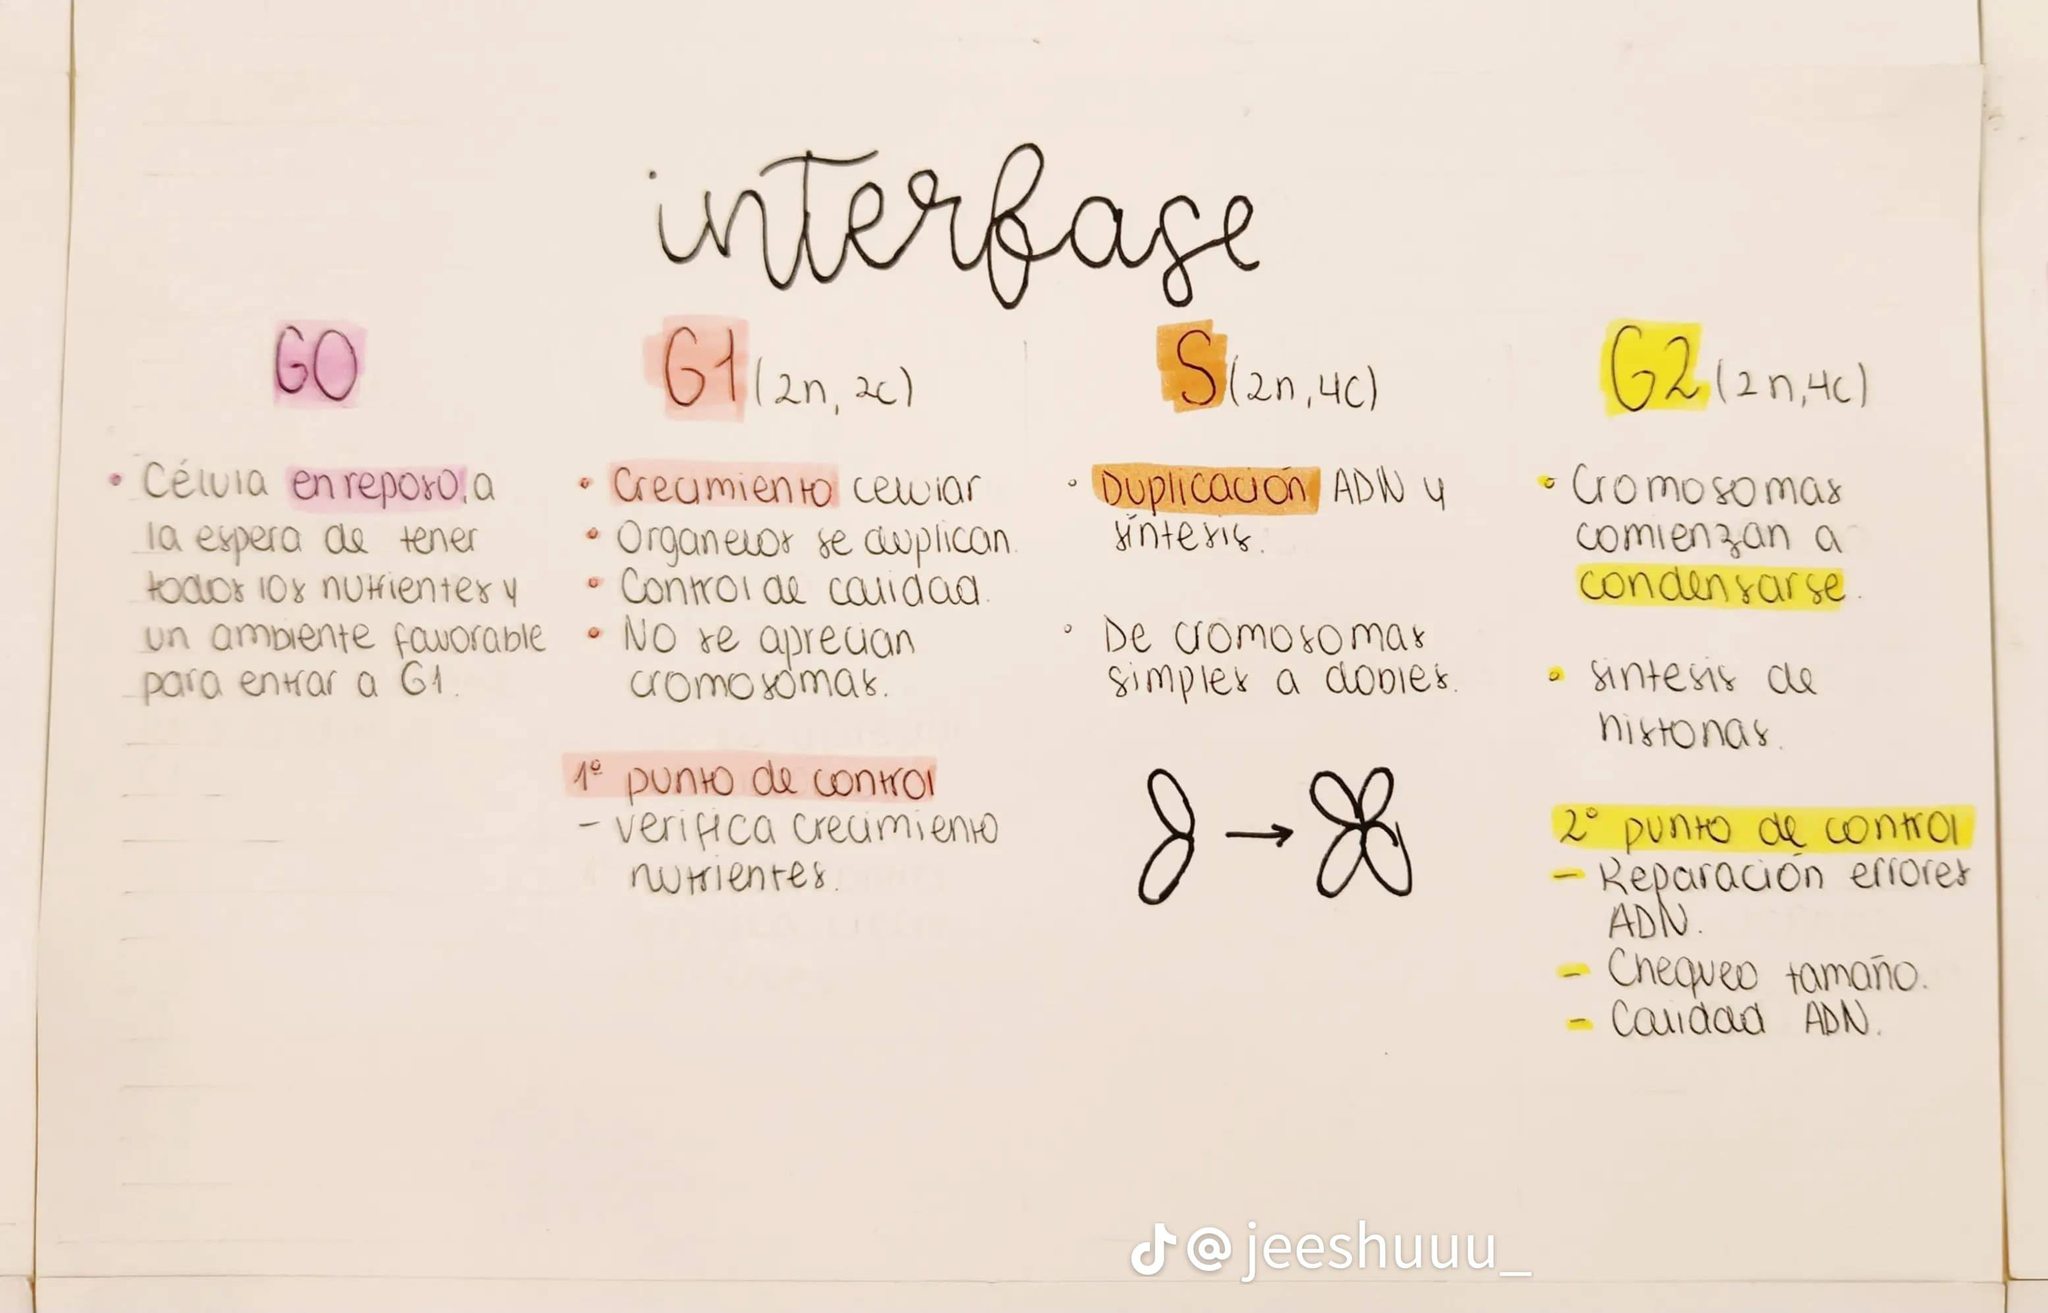 interfase
G0
• Célula en reposo, a
la espera de tener
todos los nutrientes y
un ambiente favorable
para entrar a G1.
G1 (2n, 2c)
• Crecimiento celular
• Organelos se duplican.
• Control de calidad.
• No se aprecian
cromosomas.
1º punto de control
- verifica crecimiento
nutrientes.
S (2n, 4c)
• Duplicación ADN y
síntesis.
• De cromosomas
simples a dobles.
G2 (2n, 4c)
• Cromosomas
comienzan a
condensarse.
• síntesis de
histonas.
2º punto de control
- Reparación errores
ADN.
- Chequeo tamaño.
- Calidad ADN.
@jeeshuuu_